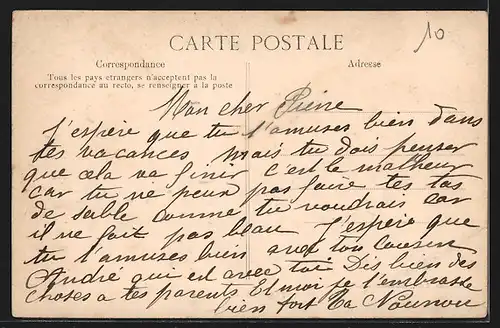 10
CARTE POSTALE
Correspondance
Adresse
Tous les pays etrangers n'acceptent pas la
correspondance au recto, se renseigner à la poste
Mon cher Pierre
J'espère que tu t'amuses bien dans
tes vacances mais tu dois penser
que cela va finir c'est le malheur
car tu ne peux pas faire tes tas
de sable comme tu voudrais car
il ne fait pas beau J'espère que
tu t'amuses bien avec ton cousin
André qui est avec toi Dis bien des
choses a tes parents Et moi je t'embrasse
bien fort Ta Nounou